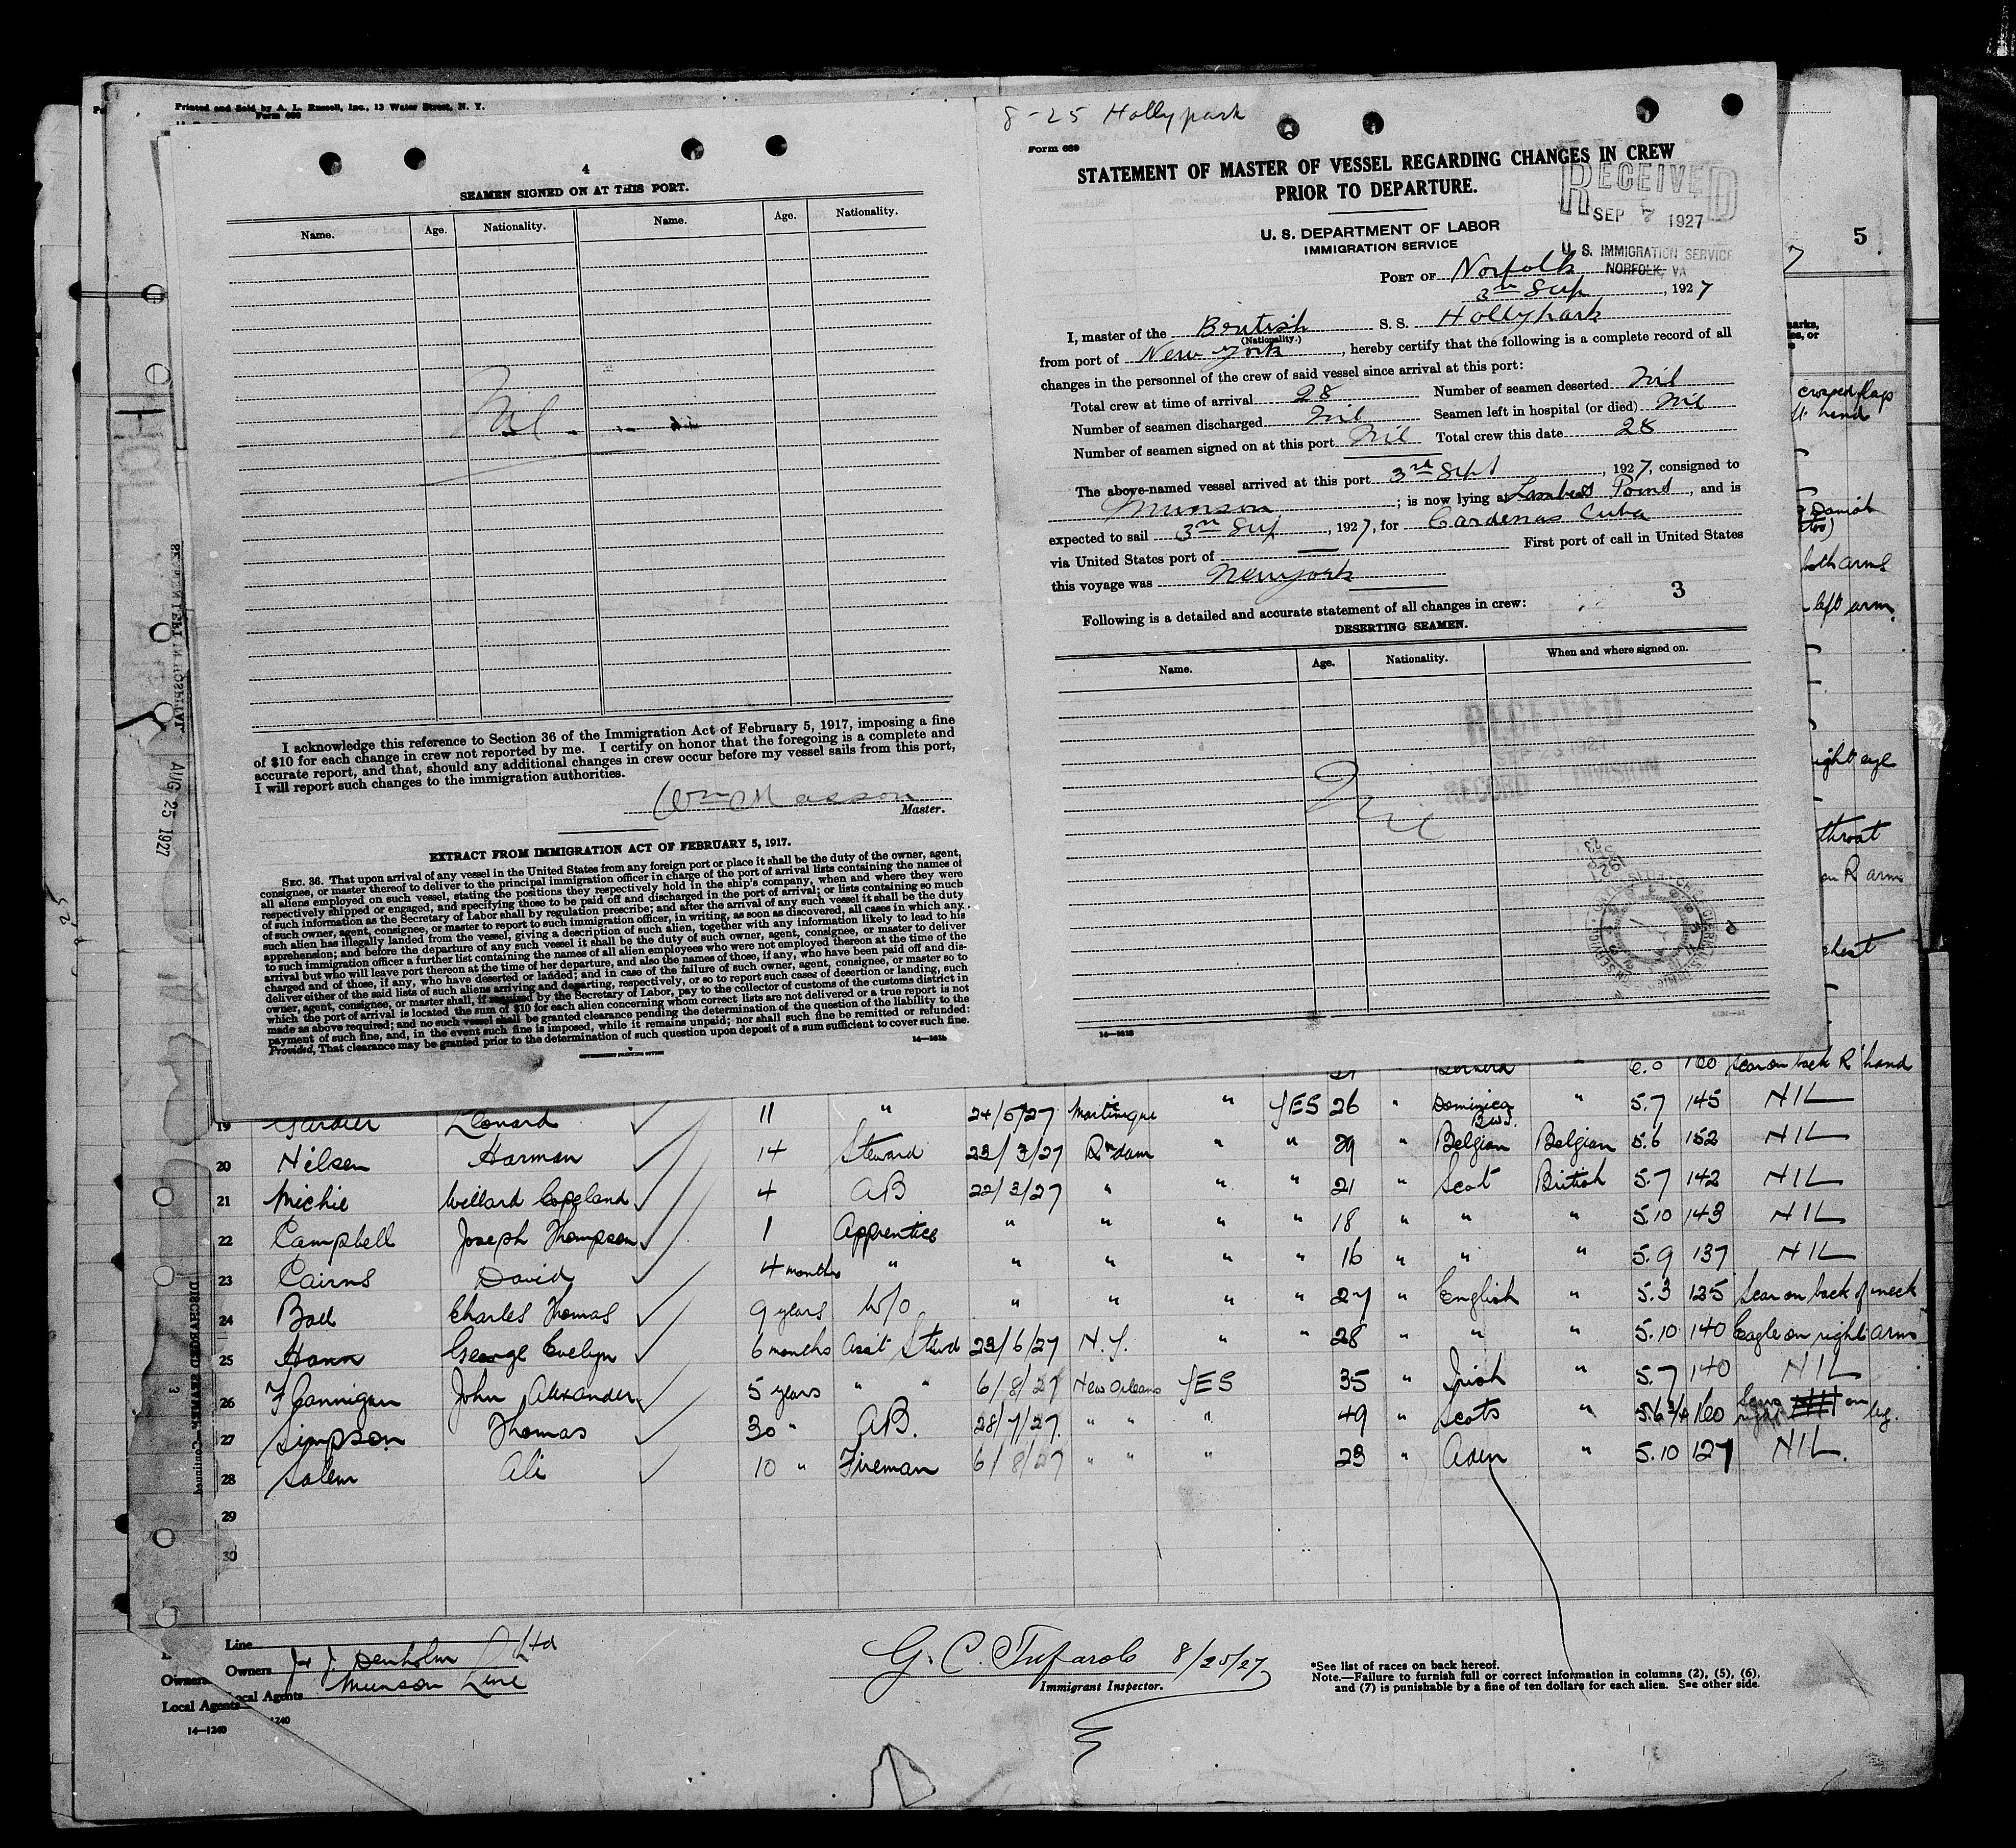 Printed and Sold by A. L. Russell, Inc., 13 Water Street, N. Y.
Form 689
4
SEAMEN SIGNED ON AT THIS PORT.
Name. Age. Nationality. Name. Age. Nationality.
Nil
I acknowledge this reference to Section 36 of the Immigration Act of February 5, 1917, imposing a fine
of $10 for each change in crew not reported by me. I certify on honor that the foregoing is a complete and
accurate report, and that, should any additional changes in crew occur before my vessel sails from this port,
I will report such changes to the immigration authorities.
Master.
EXTRACT FROM IMMIGRATION ACT OF FEBRUARY 5, 1917.
SEC. 36. That upon arrival of any vessel in the United States from any foreign port or place it shall be the duty of the owner, agent,
consignee, or master thereof to deliver to the principal immigration officer in charge of the port of arrival lists containing the names of
all aliens employed on such vessel, stating the positions they respectively hold in the ship's company, when and where they were
respectively shipped or engaged, and specifying those to be paid off and discharged in the port of arrival; or lists containing so much
of such information as the Secretary of Labor shall by regulation prescribe; and after the arrival of any such vessel it shall be the duty
of such owner, agent, consignee, or master to report to such immigration officer, in writing, as soon as discovered, all cases in which any
such alien has illegally landed from the vessel, giving a description of such alien, together with any information likely to lead to his
apprehension; and before the departure of any such vessel it shall be the duty of such owner, agent, consignee, or master to deliver
to such immigration officer a further list containing the names of all alien employees who were not employed thereon at the time of the
arrival but who will leave port thereon at the time of her departure, and also the names of those, if any, who have been paid off and dis-
charged and of those, if any, who have deserted or landed; and in case of the failure of such owner, agent, consignee, or master so to
deliver either of the said lists of such aliens arriving and departing, respectively, or so to report such cases of desertion or landing, such
owner, agent, consignee, or master shall, if required by the Secretary of Labor, pay to the collector of customs of the customs district in
which the port of arrival is located the sum of $10 for each alien concerning whom correct lists are not delivered or a true report is not
made as above required; and no such vessel shall be granted clearance pending the determination of the question of the liability to the
payment of such fine, and, in the event such fine is imposed, while it remains unpaid; nor shall such fine be remitted or refunded:
Provided, That clearance may be granted prior to the determination of such question upon deposit of a sum sufficient to cover such fine.
14—1618
GOVERNMENT PRINTING OFFICE
8-25 Hollypark
Form 689
STATEMENT OF MASTER OF VESSEL REGARDING CHANGES IN CREW
PRIOR TO DEPARTURE.
RECEIVED
SEP 7 1927
U. S. IMMIGRATION SERVICE
NORFOLK, VA
U. S. DEPARTMENT OF LABOR
IMMIGRATION SERVICE
PORT OF Norfolk
3rd Sep, 1927
I, master of the British S. S. Hollypark
(Nationality.)
from port of New York, hereby certify that the following is a complete record of all
changes in the personnel of the crew of said vessel since arrival at this port:
Total crew at time of arrival 28 Number of seamen deserted Nil
Number of seamen discharged Nil Seamen left in hospital (or died) Nil
Number of seamen signed on at this port Nil Total crew this date 28
The above-named vessel arrived at this port 3rd Sept, 1927, consigned to
Munson; is now lying at Lamberts Point, and is
expected to sail 3rd Sep, 1927, for Cardenas Cuba
via United States port of — First port of call in United States
this voyage was New York
3
Following is a detailed and accurate statement of all changes in crew:
DESERTING SEAMEN.
Name. Age. Nationality. When and where signed on.
RECEIVED
SEP 23 1927
RECORD DIVISION
Nil
14—1618
5
left arm
right eye
throat
on R arm
chest
6.0 160 Scar on back R hand
19 Gardier Leonard 11 " 24/5/27 Martinique " YES 26 " Dominica B.W.I. " 5.7 145 NIL
20 Nilsen Harman 14 Steward 23/3/27 R'dam " " 29 " Belgian Belgian 5.6 152 NIL
21 Michie Willard Copeland 4 AB 22/3/27 " " " 21 " Scot British 5.7 142 NIL
22 Campbell Joseph Thompson 1 Apprentice " " " " 18 " " " 5.10 143 NIL
23 Cairns David 4 months " " " " " 16 " " " 5.9 137 NIL
24 Charles Thomas 9 years W/O " " " " 27 " English " 5.3 125 Scar on back of neck
25 Hann George Evelyn 6 months Ass't Stwd 23/6/27 N.Y. " " 28 " " " 5.10 140 Eagle on right arm
26 Flannigan John Alexander 5 years " " 6/8/27 New Orleans YES 35 " Irish " 5.7 140 NIL
27 Simpson Thomas 30 " AB. 28/7/27 " " " 49 " Scots " 5.6 3/4 160 on right leg.
28 Salem Ali 10 " Fireman 6/8/27 " " " 23 " Aden " 5.10 127 NIL.
29
30
AUG 25 1927
DISCHARGED SEAMEN—Continued
3
Line
Owners J & J. Denholm Ltd
Local Agents Munson Line
14—1240
G. C. Tufarolo 8/25/27
Immigrant Inspector.
*See list of races on back hereof.
Note.—Failure to furnish full or correct information in columns (2), (5), (6),
and (7) is punishable by a fine of ten dollars for each alien. See other side.